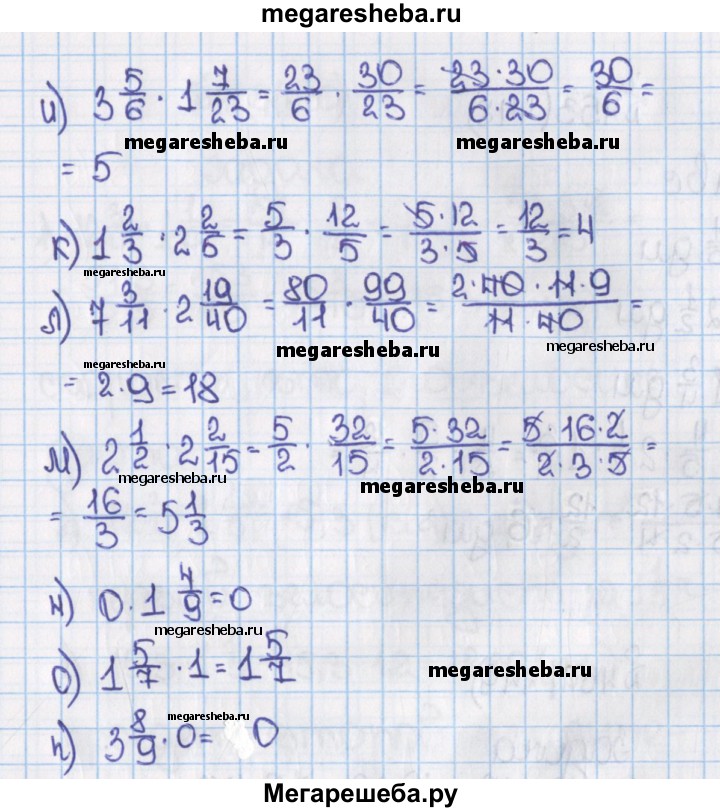 megaresheba.ru
и) 3 5/6 · 1 7/23 = 23/6 · 30/23 = 23·30/6·23 = 30/6 =
megaresheba.ru megaresheba.ru
= 5
к) 1 2/3 · 2 2/5 = 5/3 · 12/5 = 5·12/3·5 = 12/3 = 4
megaresheba.ru
л) 7 3/11 · 2 19/40 = 80/11 · 99/40 = 2·40·11·9/11·40 =
megaresheba.ru megaresheba.ru
megaresheba.ru
= 2·9 = 18
м) 2 1/2 · 2 2/15 = 5/2 · 32/15 = 5·32/2·15 = 5·16·2/2·3·5 =
megaresheba.ru megaresheba.ru
= 16/3 = 5 1/3
н) 0 · 1 4/9 = 0
megaresheba.ru
о) 1 5/7 · 1 = 1 5/7
megaresheba.ru
megaresheba.ru
п) 3 8/9 · 0 = 0
Мегарешеба.ру